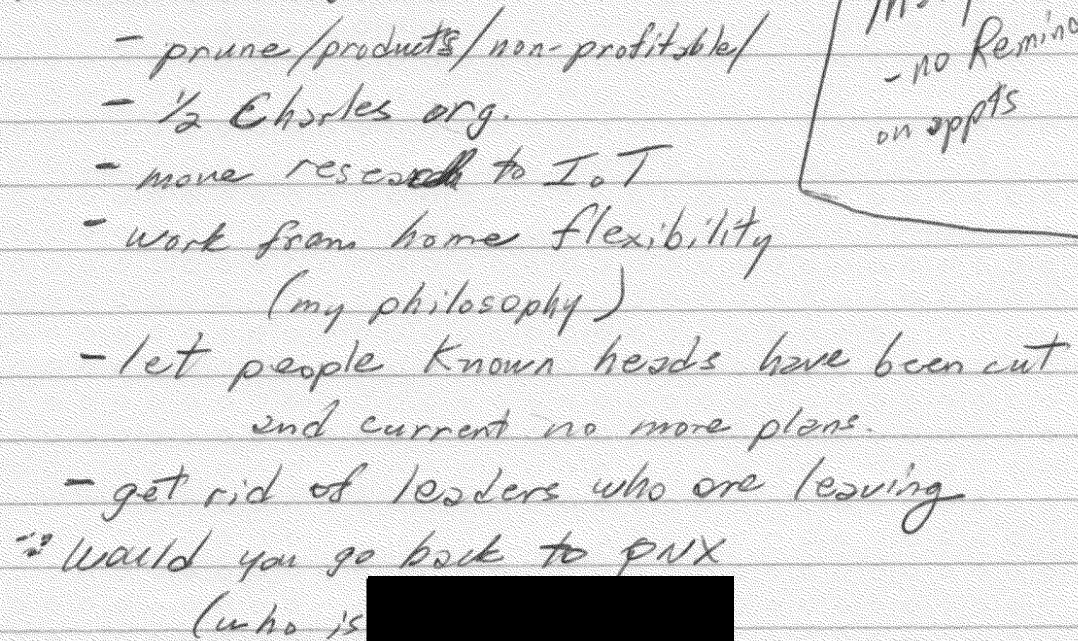 - prune/products/non-profitable/
- 1/2 Charles org.
- move research to IoT
- work from home flexibility
(my philosophy)
- let people known heads have been cut
and current no more plans.
- get rid of leaders who are leaving
would you go back to PNX
(who is
- no Remind
on appts